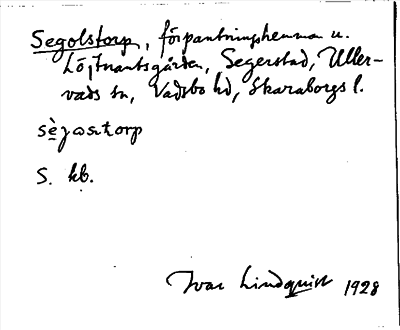 Segolstorp, förpantningshemman u.
Löjtnantsgården, Segerstad, Uller-
vads sn, Vadsbo hd, Skaraborgs l.
sègωstorp
S. kb.
Ivar Lindquist 1928